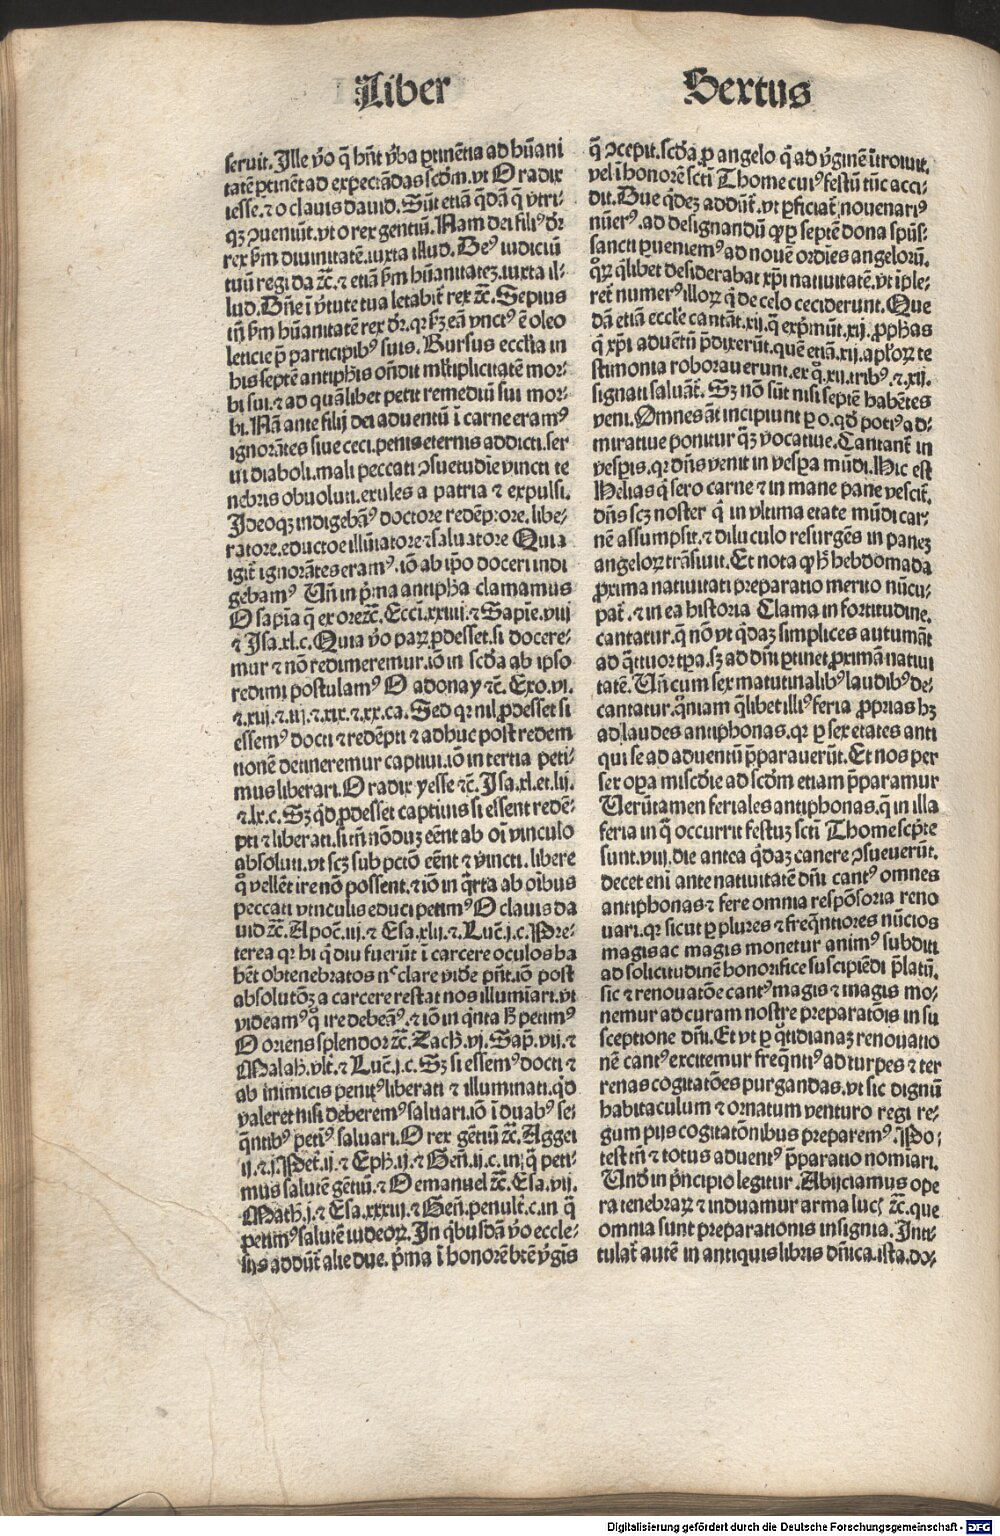 Liber Sextus
seruit. Ille v̾o q̄ hn̄t v̾ba ꝑtinẽtia ad hũani
tatẽ ꝑtinẽt ad expectãdas scd̾m. vt O radix
iesse. ⁊ o clauis dauid. Sũt etiã q̃dã q̄ vtri-
qꝫ ꝯueniũt. vt o rex gentiũ. Nam dei fili⁹ dr̃
rex ẜm diuinitatẽ. iuxta illud. De⁹ iudiciũ
tuũ regi da ⁊c̃. ⁊ etiã ẜm hũanitateꝫ. iuxta il-
lud. Dñe ĩ v̾tute tua letabit̃ rex ⁊c̃. Sepius
tñ ẜm hũanitatẽ rex dr̃. qꝛ ẜꝫ eã vnct⁹ ẽ oleo
leticie p̃ participib⁹ suis. Rursus eccl̾ia in
his septẽ antiph̾is oñdit ml̾tiplicitatẽ mor-
bi sui. ⁊ ad quãlibet petit remediũ sui mor-
bi. Nã ante filij dei aduentũ ĩ carne eram⁹
ignorãtes siue ceci. penis eternis addicti. ser
ui diaboli. mali peccati ꝯsuetudĩe vincti te
nebris obuoluti. exules a patria ⁊ expulsi.
Ideoqꝫ indigebam⁹ doctore redẽptore. libe-
ratore. eductoe illũiatore ⁊ saluatore Quia
igit̃ ignorãtes eram⁹. iõ ab ip̃o doceri indi
gebam⁹ Vñ in p̾ma antiph̾a clamamus
O sapĩa q̄ ex ore ⁊c̃. Ecci. xxiiij. ⁊ Sapĩe. viij
⁊ Isa. xl. c. Quia v̾o paꝝ ꝓdesset. si docere-
mur ⁊ nõ redimeremur. iõ in scd̾a ab ipso
redimi postulam⁹ O adonay ⁊c̃. Exo. vi.
⁊. xiij. ⁊. iij. ⁊. xix. ⁊. xx. ca. Sed qꝛ nil ꝓdesset si
essem⁹ docti ⁊ redẽpti ⁊ adhuc post redem
tionẽ detineremur captiui. iõ in tertia peti-
mus liberari. O radix yesse ⁊c̃. Isa. xl. et. lij.
⁊. lx. c. Sꝫ q̾d ꝓdesset captiuis si essent redẽ-
pti ⁊ liberati. si tñ nõduꝫ eẽnt ab oĩ vinculo
absoluti. vt scꝫ sub pctõ eẽnt ⁊ vĩncti. libere
q̊ vellẽt ire nõ possent. ⁊ iõ in q̾rta ab oĩbus
peccati vinculis educi petim⁹ O clauis da
uid ⁊c̃. Apoc̾. iij. ⁊ Esa. xlij. ⁊. Luc̃. j. c. Pre-
terea qꝛ hi q̾ diu fuerũt ĩ carcere oculos ha
bẽt obtenebratos nᶜ clare vid̾e pñt. iõ post
absolutõꝫ a carcere restat nos illumĩari. vt
videam⁹ q̊ ire debeam⁹. ⁊ iõ in q̾nta h̾ petim⁹
O oriens splendor ⁊c̃. Zach̾. vj. Sap̃. vij. ⁊
Malah̾. vlt̾. ⁊ Luc̃. j. c. Sꝫ si essem⁹ docti ⁊
ab inimicis penit⁹ liberati ⁊ illuminati. q̾d
valeret nisi deberem⁹ saluari. iõ ĩ duab⁹ se-
q̃ntib⁹ petim⁹ saluari. O rex gẽtiũ ⁊c̃. Aggei
ij. ⁊. j. Pet̾. ij. ⁊ Eph̾. ij. ⁊ Geñ. ij. c. in q̄ peti-
mus salutẽ gẽtiũ. ⁊ O emanuel ⁊c̃. Esa. vij.
Math̾. j. ⁊ Esa. xxxiij. ⁊ Geñ. penult̾. c. in q̄
petim⁹ salutẽ iudeoꝝ. In q̾busdã v̾o eccle-
sijs addũt̃ alie due. p̾ma ĩ honorẽ btẽ v̾gĩs
q̄ ꝯcepit. scd̾a ꝓ angelo q̾ ad v̾ginẽ ĩtroiuit.
vel ĩ honorẽ scti Thome cui⁹ festũ tũc acci-
dit. Due q̾deꝫ addũt̃. vt ꝑficiat̃ nouenari⁹
nũer⁹. ad designandũ qꝙ ꝑ septẽ dona sp̃us-
sancti ꝑueniem⁹ ad nouẽ ordĩes angeloꝝ.
qꝝ q̾libet desiderabat xp̃i natiuitatẽ. vt ĩple-
ret̃ numer⁹ illoꝝ q̾ de celo ceciderunt. Que
dã etiã eccl̾ie cantãt. xij. q̄ exp̾mũt. xij. ꝓph̾as
q̾ xp̃i aduentũ p̃dixerũt. quẽ etiã. xij. apl̾oꝝ te
stimonia roborauerunt. ex q̾. xij. trib⁹. ⁊. xij.
signati saluãt̃. Sꝫ nõ sũt nisi septẽ habẽtes
veni. Omnes ãt incipiunt ꝑ o. qd̾ poti⁹ ad-
miratiue ponitur q̃ꝫ vocatiue. Cantant̃ in
vesꝑis. qꝛ dñs venit in vesꝑa mũdi. Hic est
Helias q̾ sero carne ⁊ in mane pane vescit̃.
dñs scꝫ noster q̾ in vltima etate mũdi car-
nẽ assumpsit. ⁊ diluculo resurgẽs in paneꝫ
angeloꝝ trãsiuit. Et nota qꝙ h̾ hebdomada
ꝓxima natiuitati preparatio merito nũcu-
pat̃. ⁊ in ea historia Clama in fortitudine.
cantatur. q̄ nõ vt q̾daꝫ simplices autumãt
ad q̃ttuor tꝑa. sꝫ ad dñi ꝑtinet ꝓximã natiui
tatẽ. Vñ cum sex matutinalib⁹ laudib⁹ de-
cantatur. qm̃iam q̾libet illi⁹ feria ꝓprias hꝫ
ad laudes antiphonas. qꝛ ꝑ sex etates anti
qui se ad aduentũ p̃parauerũt. Et nos per
sex oꝑa misc̾die ad scd̾m etiam p̃paramur
Verũtamen feriales antiphonas. q̄ in illa
feria in q̄ occurrit festuꝫ scti Thome sc̾pte
sunt. viij. die antea q̾daꝫ canere ꝯsueuerũt.
decet eni ante natiuitatẽ dñi cant⁹ omnes
antiphonas ⁊ fere omnia respõsoria reno
uari. qꝛ sicut ꝑ plures ⁊ freq̃ntiores nũcios
magis ac magis monetur anim⁹ subditi
ad solicitudinẽ honorifice suscipiẽdi p̃latũ.
sic ⁊ renouatõe cant⁹ magis ⁊ magis mo-
nemur ad curam nostre preparatõis in su
sceptione dñi. Et vt ꝑ q̊tidianaꝫ renouatio
nẽ cant⁹ excitemur freq̃nti⁹ ad turpes ⁊ ter
renas cogitatões purgandas. vt sic dignũ
habitaculum ⁊ ornatum venturo regi re-
gum pijs cogitatõnibus preparem⁹. Po-
test tñ ⁊ totus aduent⁹ p̃paratio nomiari.
Vnd̾ in p̾ncipio legitur. Abijciamus ope
ra tenebraꝝ ⁊ induamur arma lucꝭ ⁊c̃. que
omnia sunt preparationis insignia. Inti-
tulat̃ autẽ in antiquis libris dñica. ista. do-
Digitalisierung gefördert durch die Deutsche Forschungsgemeinschaft - DFG